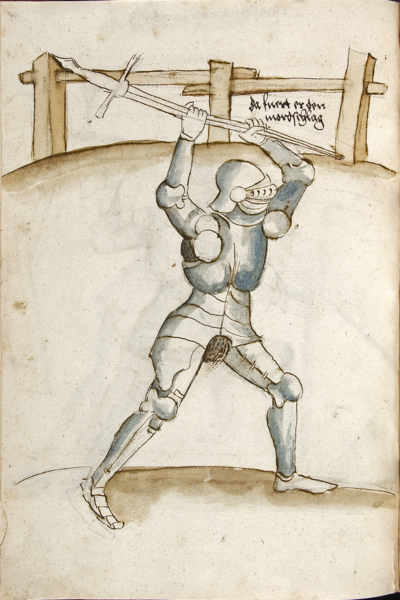 da fuert er den
mordschlag